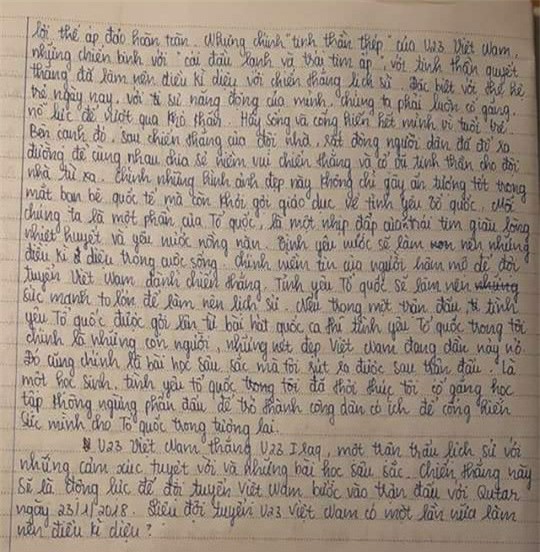 lợi thế áp đảo hoàn toàn. Nhưng chính "tinh thần thép" của U23 Việt Nam,
những chiến binh với "cái đầu lạnh và trái tim ấp", với tinh thần quyết
thắng đã làm nên điều kì diệu với chiến thắng lịch sử. Đặc biệt với thế hệ
trẻ ngày nay, với sự năng động của mình, chúng ta phải luôn cố gắng,
nỗ lực để vượt qua khó khăn. Hãy sống và cống hiến hết mình vì tuổi trẻ.
Bên cạnh đó, sau chiến thắng của đội nhà, rất đông người dân đã đổ ra
đường để cùng nhau chia sẻ niềm vui chiến thắng và cổ vũ tinh thần cho đội
nhà từ xa. Chính những hình ảnh đẹp này không chỉ gây ấn tượng tốt trong
mắt bạn bè quốc tế mà còn khơi gợi giáo dục về tình yêu Tổ quốc. Mỗi
chúng ta là một phần của Tổ quốc, là một nhịp đập của trái tim giàu lòng
nhiệt huyết và yêu nước nồng nàn. Tình yêu nước sẽ làm nên những
điều kì diệu trong cuộc sống. Chính niềm tin của người hâm mộ để đội
tuyển Việt Nam dành chiến thắng. Tình yêu Tổ quốc sẽ làm nên những
sức mạnh to lớn để làm nên lịch sử. Nếu trong một trận đấu tình
yêu Tổ quốc được gợi lên từ bài hát quốc ca thì tình yêu Tổ quốc trong tôi
chính là những con người, những nét đẹp Việt Nam đang dần nảy nở.
Đó cũng chính là bài học sâu sắc mà tôi rút ra được sau trận đấu. Là
một học sinh, tình yêu tổ quốc trong tôi đã thôi thúc tôi cố gắng học
tập không ngừng phấn đấu để trở thành công dân có ích để cống hiến
sức mình cho Tổ quốc trong tương lai.
U23 Việt Nam thắng U23 Iraq, một trận trấu lịch sử với
những cảm xúc tuyệt vời và những bài học sâu sắc. Chiến thắng này
sẽ là động lực để đội tuyển Việt Nam bước vào trận đấu với Qutar
ngày 23/1/2018. Liệu đội tuyển U23 Việt Nam có một lần nữa làm
nên điều kì diệu?